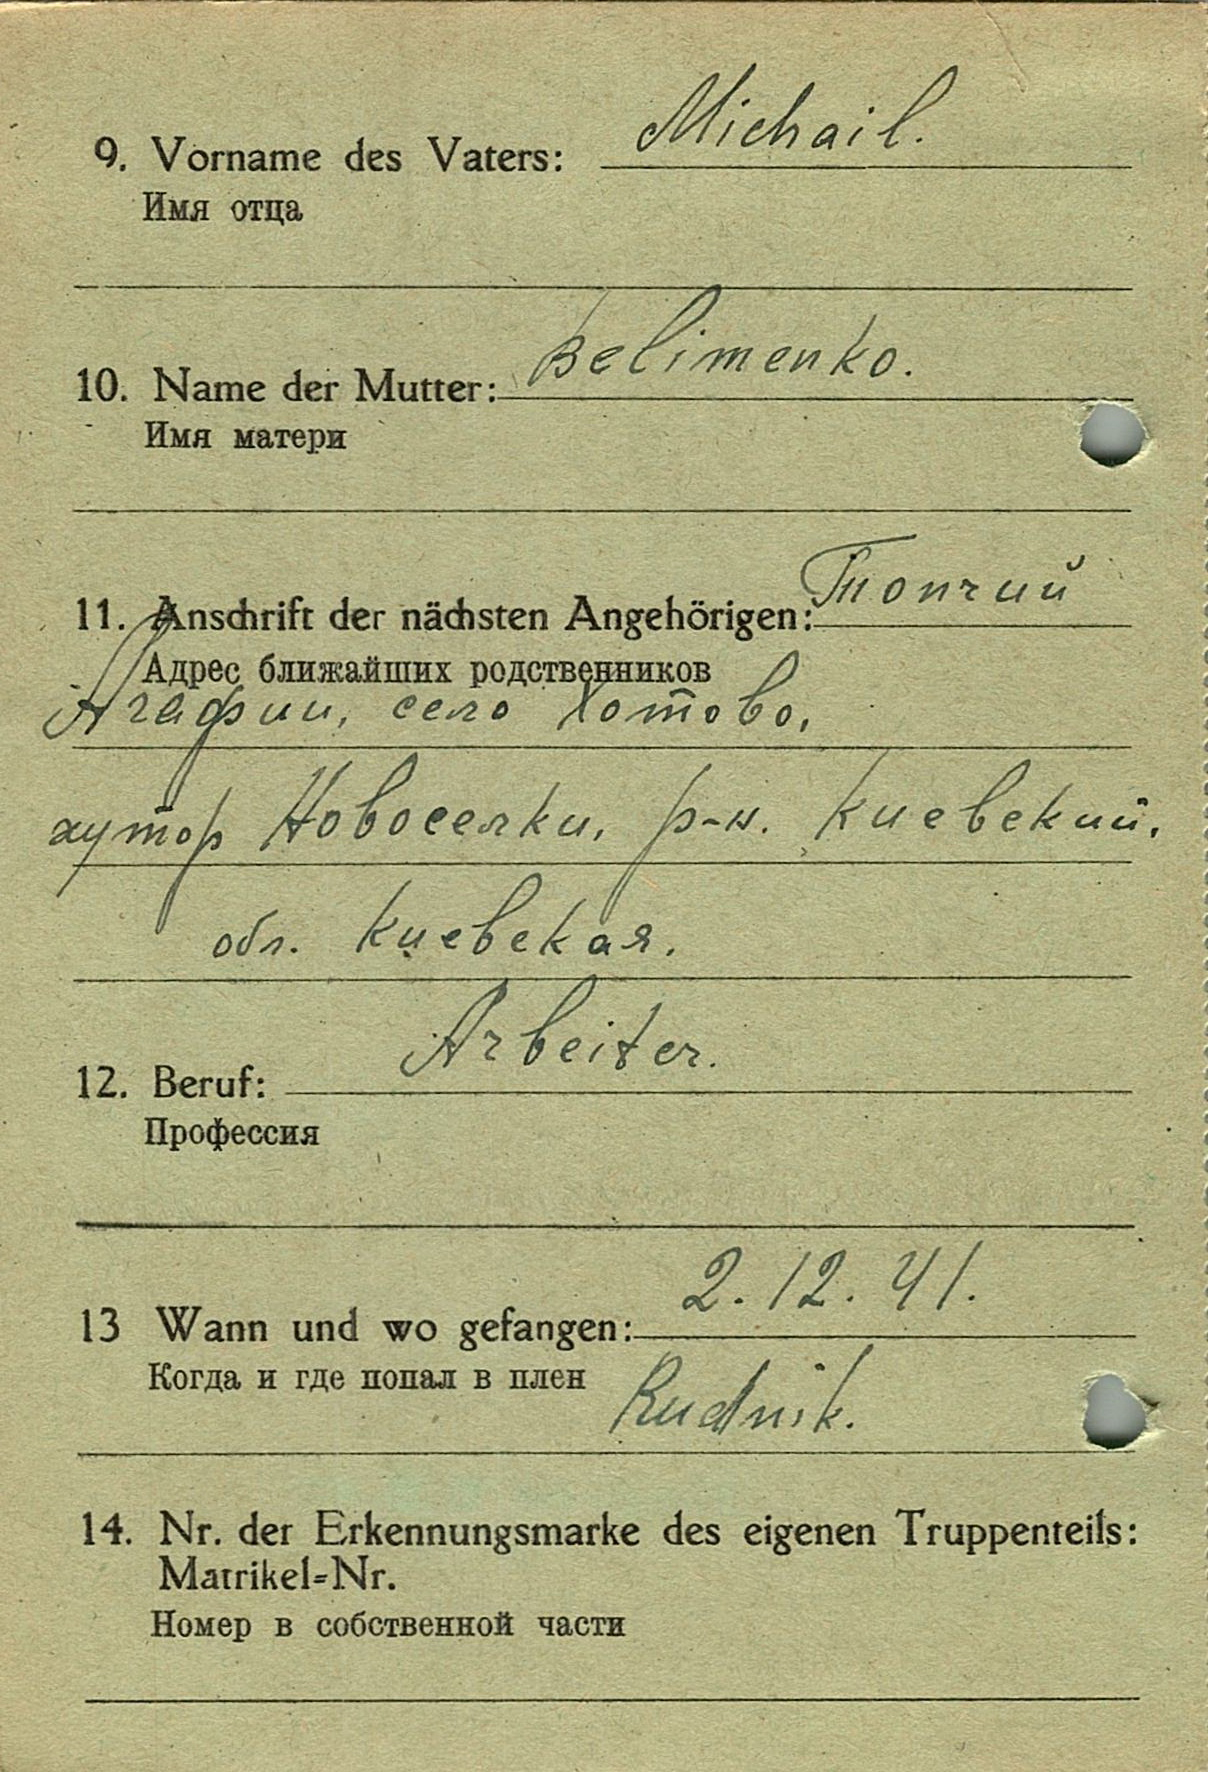 9. Vorname des Vaters: Michail.
Имя отца
10. Name der Mutter: Belimenko.
Имя матери
11. Anschrift der nächsten Angehörigen: Топчий
Адрес ближайших родственников
Агафии, село Хотово,
хутор Новоселки, р-н. Киевский,
обл. Киевская.
12. Beruf: Arbeiter.
Профессия
13 Wann und wo gefangen: 2. 12. 41.
Когда и где попал в плен Rudnik.
14. Nr. der Erkennungsmarke des eigenen Truppenteils:
Matrikel-Nr.
Номер в собственной части